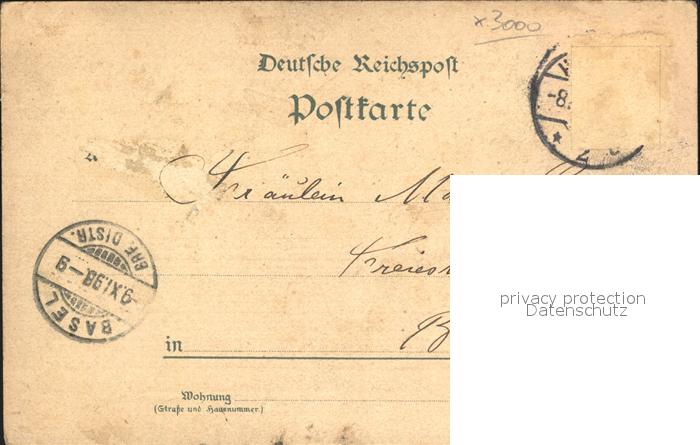 x3000
Deutsche Reichspost
Postkarte
-8.
Fräulein
BASEL
9.XI.98.-9
BRF. DISTR.
in
Wohnung
(Straße und Hausnummer.)
privacy protection
Datenschutz